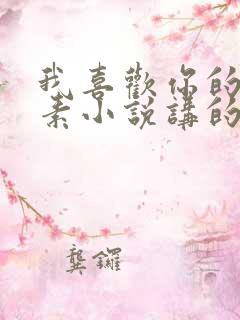 我喜歡你的
素小說講的
龔鑼